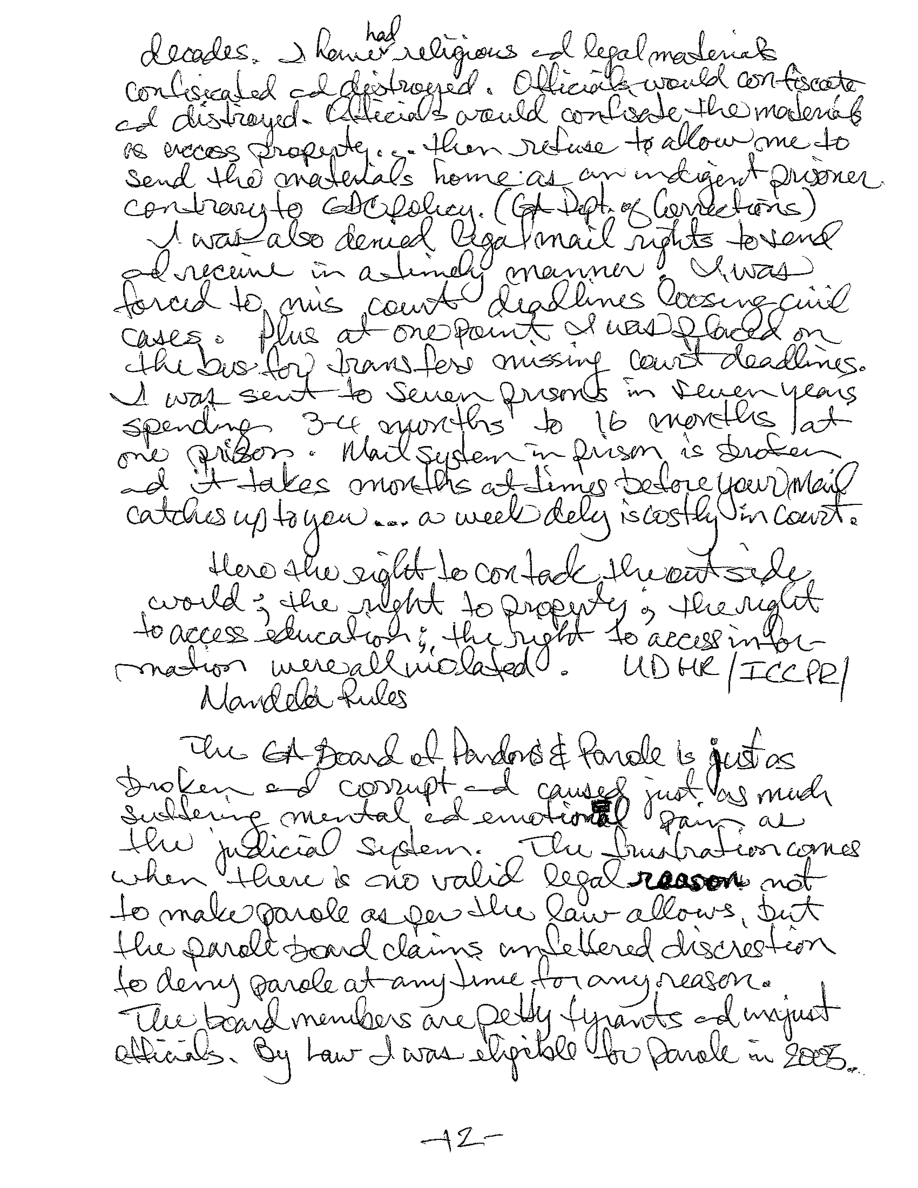 decades. I have had religious and legal materials
confisicated and distroyed. Officials would confiscate
and distroyed. Officials would confisate the materials
as access property... then refuse to allow me to
send the materials home as an indigent prisoner
contrary to GDC policy. (GA Dept. of Corrections)
I was also denied legal mail rights to send
and receive in a timely manner. I was
forced to mis court deadlines loosing civil
cases. Plus at one point I was placed on
the bus for transfers missing court deadlines.
I was sent to seven prisons in seven years
spending 3-4 months to 16 months at
one prison. Mail system in prison is broken
and it takes months at times before your mail
catches up to you .... a week dely is costly in court.
Here the right to contack the outside
world; the right to property; the right
to access education; the right to access infor-
mation were all violated. UDHR/ICCPR/
Mandela Rules
The GA Board of Pardons & Parole is just as
broken and corrupt and caused just as much
suffering mental and emotional pain as
the judicial system. The frustration comes
when there is no valid legal reason not
to make parole as per the law allows, but
the parole board claims unfettered discretion
to deny parole at any time for any reason.
The board members are petty tyrants and unjust
officials. By Law I was eligible for Parole in 2005...
-12-